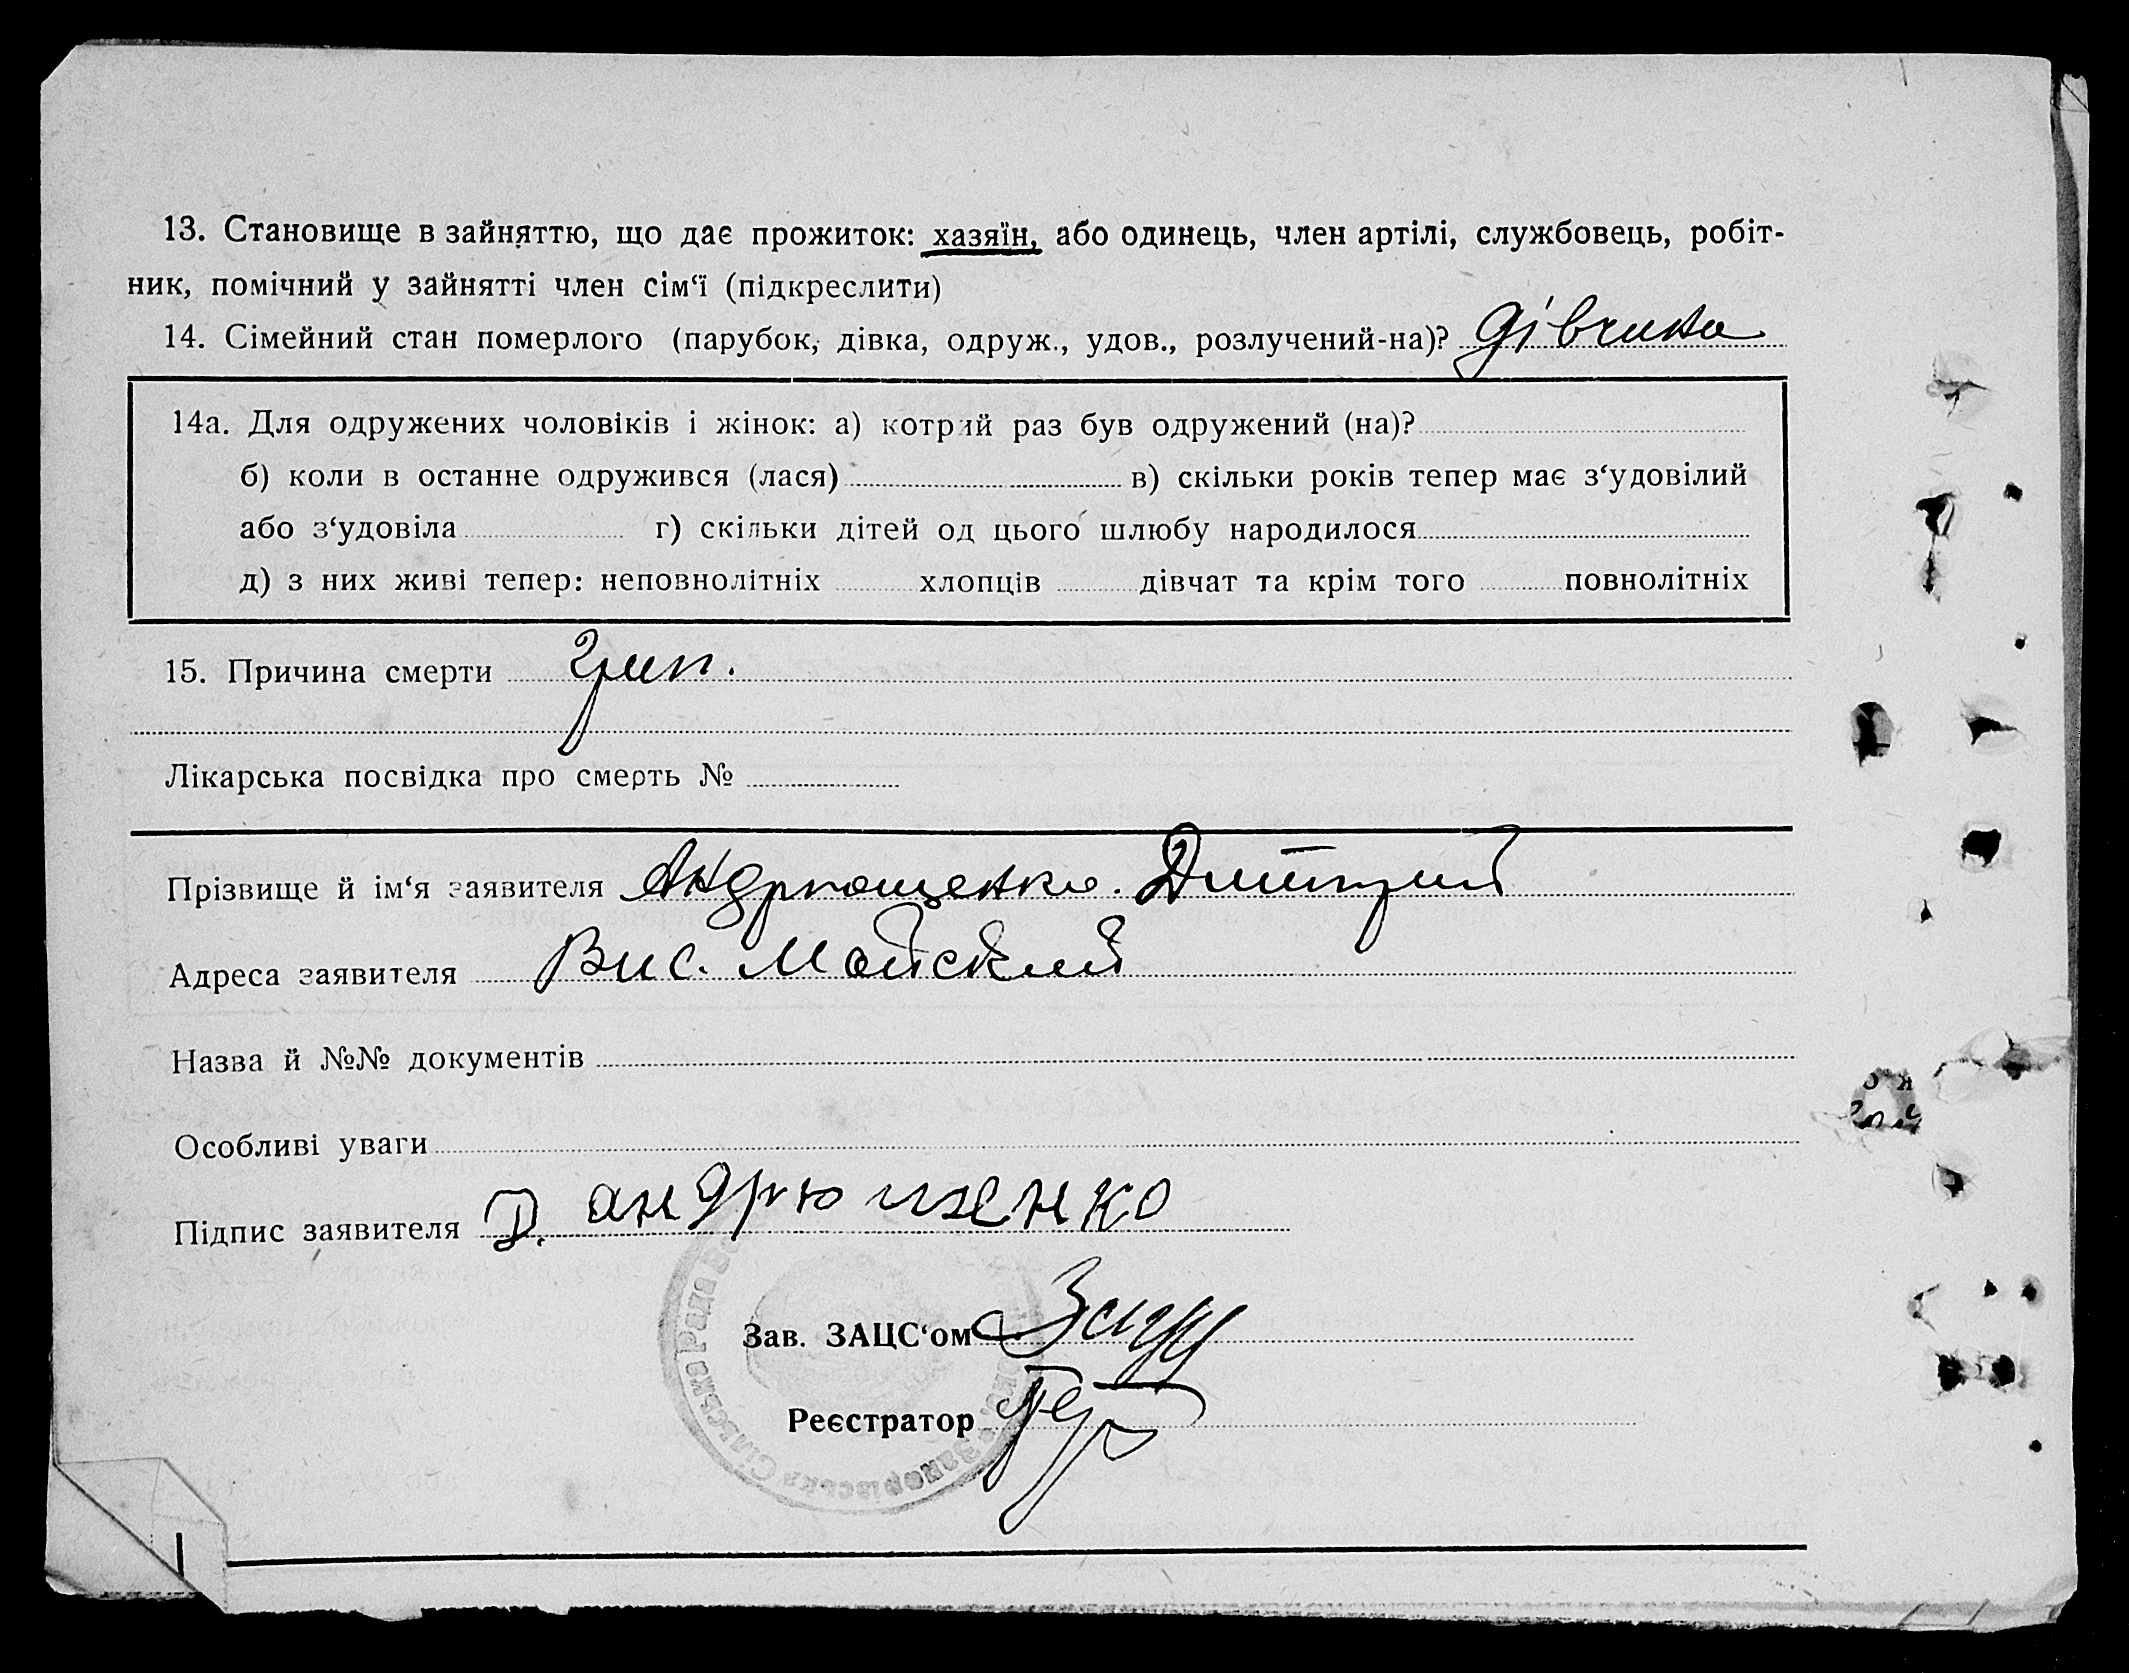 13. Становище в зайняттю, що дає прожиток: хазяїн, або одинець, член артілі, службовець, робіт-
ник, помічний у зайнятті член сім‘ї (підкреслити)
14. Сімейний стан померлого (парубок, дівка, одруж., удов., розлучений-на)? дівчина
14а. Для одружених чоловіків і жінок: а) котрий раз був одружений (на)?
б) коли в останне одружився (лася) в) скільки років тепер має з‘удовілий
або з‘удовіла г) скільки дітей од цього шлюбу народилося
д) з них живі тепер: неповнолітніх хлопців дівчат та крім того повнолітніх
15. Причина смерти грип.
Лікарська посвідка про смерть №
Прізвище й ім‘я заявителя Андрющенко. Дмитрий
Адреса заявителя Вис. Майский
Назва й №№ документів
Особливі уваги
Підпис заявителя Д. андрющенко
Зав. ЗАЦС‘ом
Реєстратор
Сільська Рада